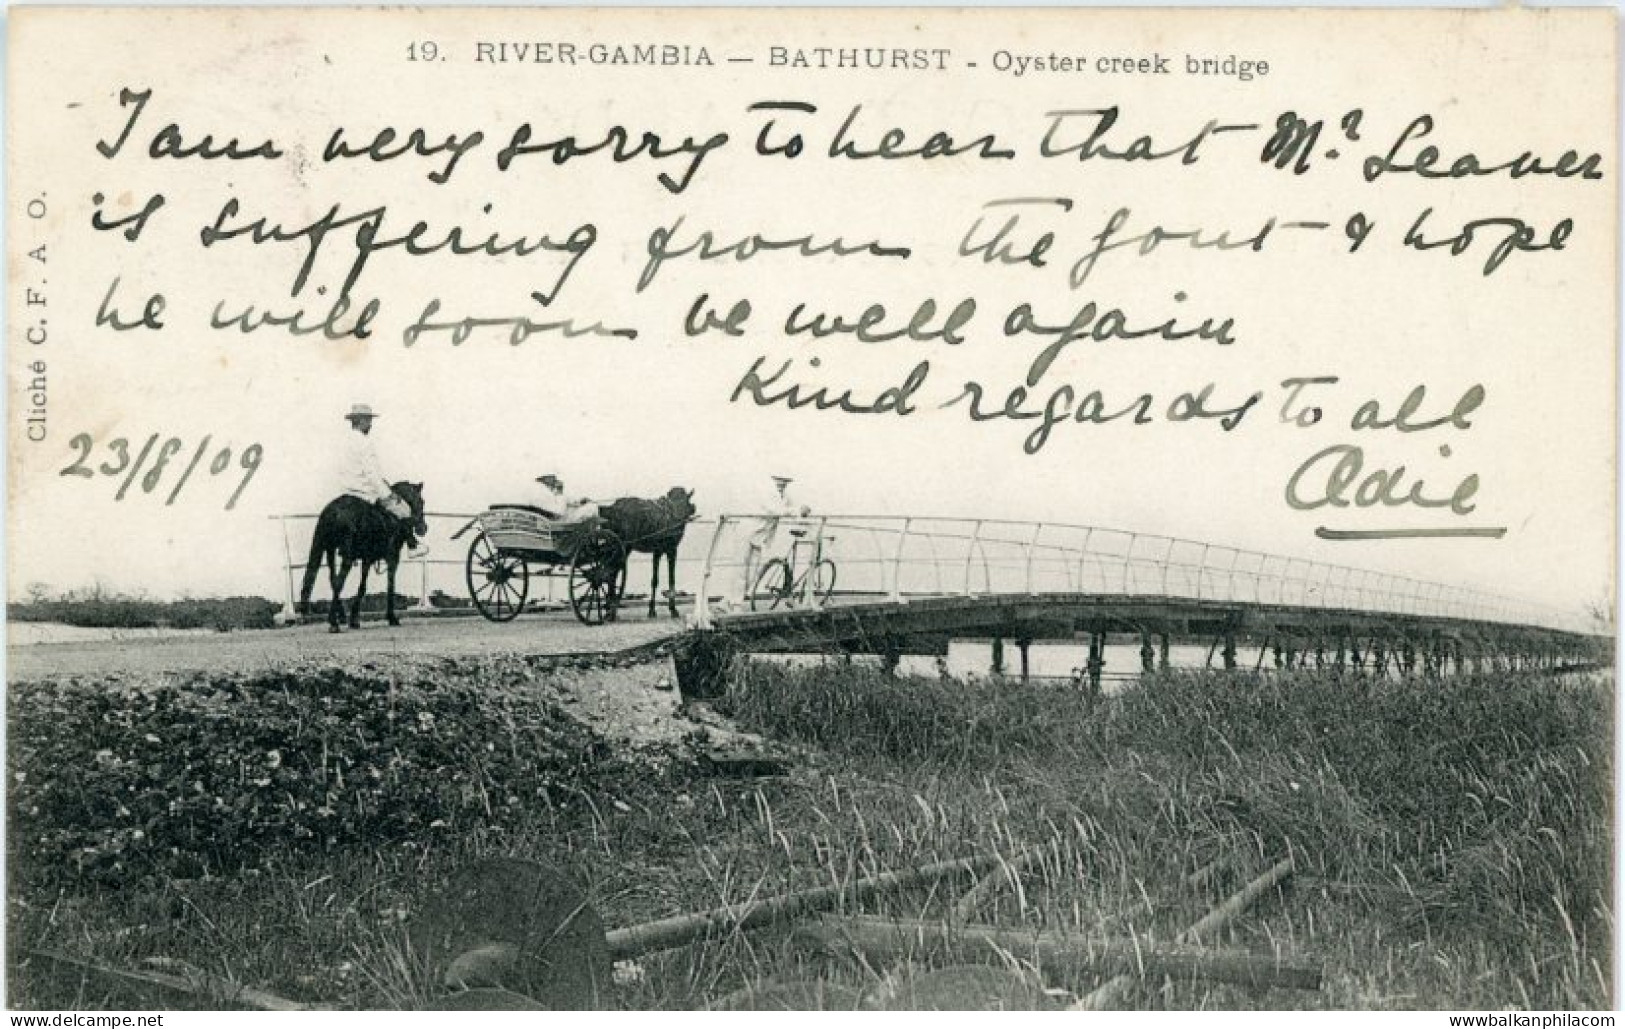 19. RIVER-GAMBIA — BATHURST - Oyster creek bridge
I am very sorry to hear that Mr. Leaver
is suffering from the gout & hope
he will soon be well again
Kind regards to all
Adie
23/8/09
Cliché C. F. A O.
www.balkanphila.com